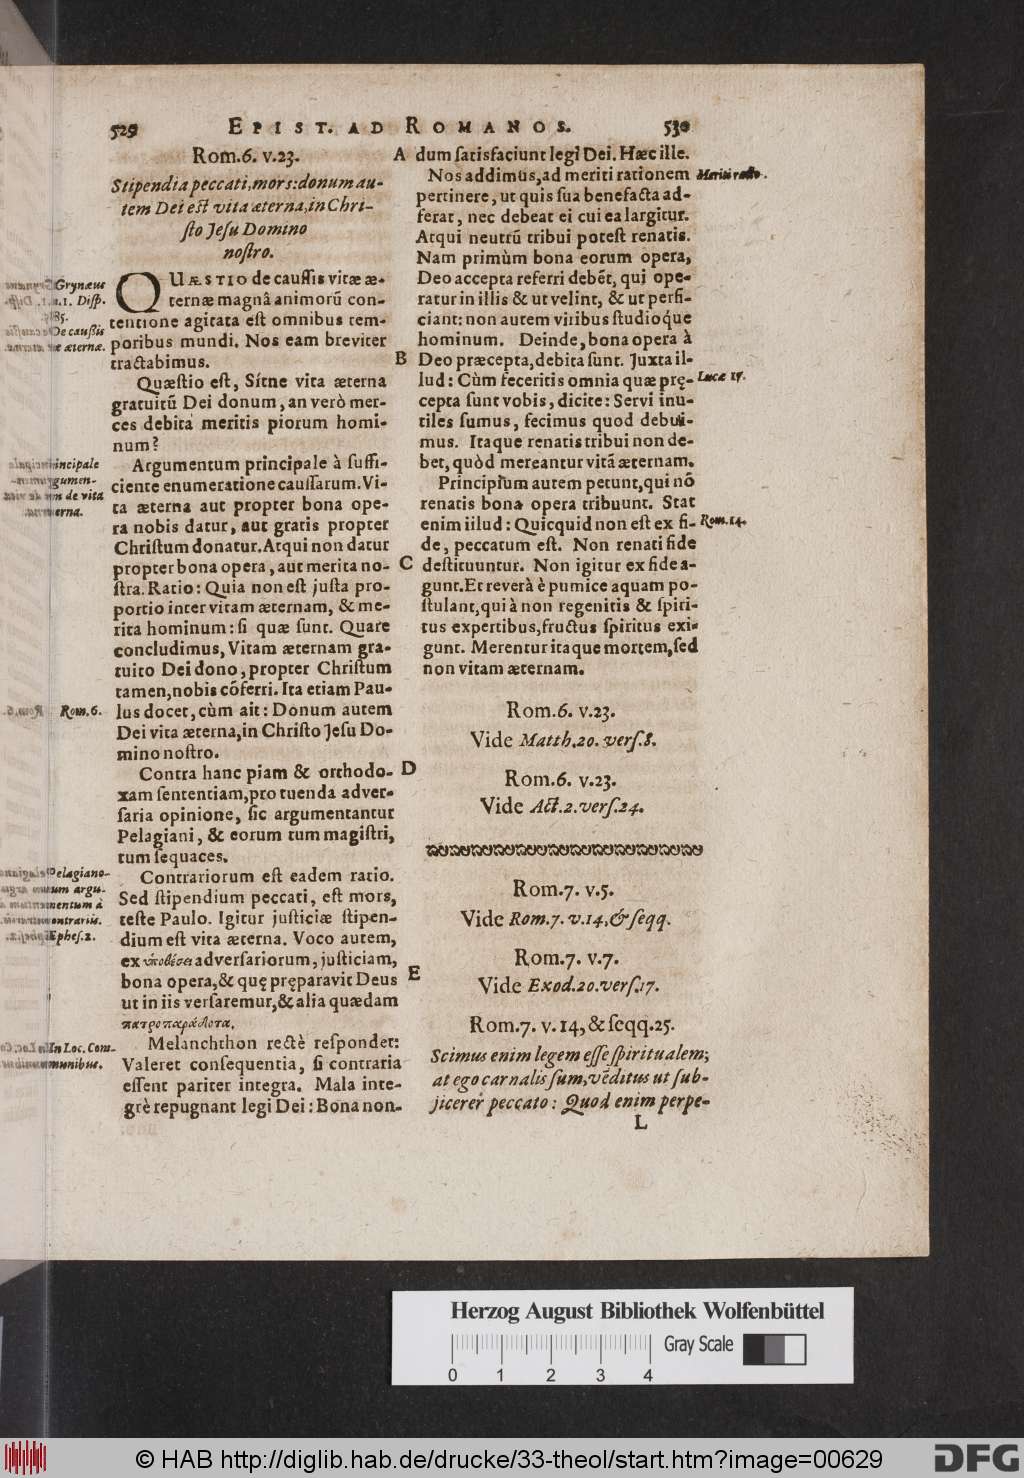 529 EPIST. AD ROMANOS. 530
Rom.6. v.23.
Stipendia peccati, mors: donum au-
tem Dei est vita æterna, in Chri-
sto Jesu Domino
nostro.
QUÆSTIO de caussis vitæ æ-
ternæ magnâ animorũ con-
tentione agitata est omnibus tem-
poribus mundi. Nos eam breviter
tractabimus.
Quæstio est, Sítne vita æterna
gratuitũ Dei donum, an verò mer-
ces debita meritis piorum homi-
num?
Argumentum principale à suffi-
ciente enumeratione caussarum. Vi-
ta æterna aut propter bona ope-
ra nobis datur, aut gratis propter
Christum donatur. Atqui non datur
propter bona opera, aut merita no-
stra. Ratio: Quia non est justa pro-
portio inter vitam æternam, & me-
rita hominum: si quæ sunt. Quare
concludimus, Vitam æternam gra-
tuito Dei dono, propter Christum
tamen, nobis cõferri. Ita etiam Pau-
lus docet, cùm ait: Donum autem
Dei vita æterna, in Christo Jesu Do-
mino nostro.
Contra hanc piam & orthodo-
xam sententiam, pro tuenda adver-
saria opinione, sic argumentantur
Pelagiani, & eorum tum magistri,
tum sequaces.
Contrariorum est eadem ratio.
Sed stipendium peccati, est mors,
teste Paulo. Igitur justiciæ stipen-
dium est vita æterna. Voco autem,
ex ὑποθέσει adversariorum, justiciam,
bona opera, & quę pręparavit Deus
ut in iis versaremur, & alia quædam
πατροπαράδοτα.
Melanchthon rectè respondet:
Valeret consequentia, si contraria
essent pariter integra. Mala inte-
grè repugnant legi Dei: Bona non-
Grynæus
1. Disp.
De caussis
æternæ.
Rom.6.
Pelagiano-
Ephes.2.
In Loc. Com-
munibus.
A
B
C
D
E
dum satisfaciunt legi Dei. Hæc ille.
Nos addimus, ad meriti rationem
pertinere, ut quis sua benefacta ad-
ferat, nec debeat ei cui ea largitur.
Atqui neutrũ tribui potest renatis.
Nam primùm bona eorum opera,
Deo accepta referri debẽt, qui ope-
ratur in illis & ut velint, & ut perfi-
ciant: non autem viribus studioque
hominum. Deinde, bona opera à
Deo præcepta, debita sunt. Juxta il-
lud: Cùm feceritis omnia quæ prę-
cepta sunt vobis, dicite: Servi inu-
tiles sumus, fecimus quod debui-
mus. Itaque renatis tribui non de-
bet, quòd mereantur vitã æternam.
Principium autem petunt, qui nõ
renatis bona opera tribuunt. Stat
enim illud: Quicquid non est ex fi-
de, peccatum est. Non renati fide
destituuntur. Non igitur ex fide a-
gunt. Et reverà è pumice aquam po-
stulant, qui à non regenitis & spiri-
tus expertibus, fructus spiritus exi-
gunt. Merentur itaque mortem, sed
non vitam æternam.
Meriti ratio.
Lucæ 17.
Rom.14.
Rom.6. v.23.
Vide Matth.20. vers.8.
Rom.6. v.23.
Vide Act.2. vers.24.
Rom.7. v.5.
Vide Rom.7. v.14, & seqq.
Rom.7. v.7.
Vide Exod.20. vers.17.
Rom.7. v.14, & seqq.25.
Scimus enim legem esse spiritualem;
at ego carnalis sum, vẽditus ut sub-
jicerer peccato: Quod enim perpe-
L
Herzog August Bibliothek Wolfenbüttel
Gray Scale
0 1 2 3 4
© HAB http://diglib.hab.de/drucke/33-theol/start.htm?image=00629
DFG